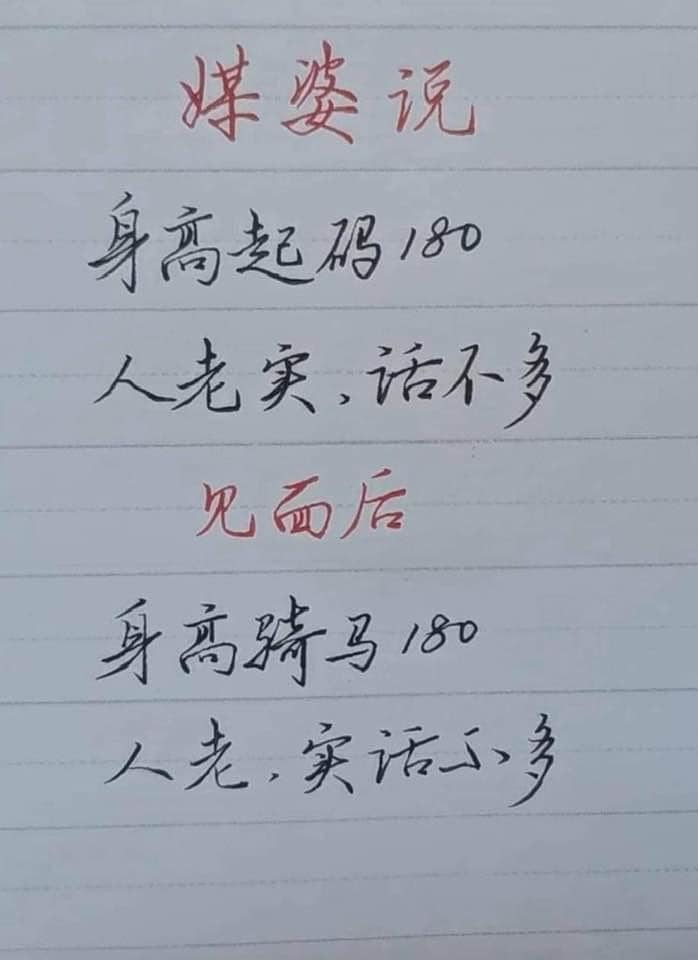 媒婆说
身高起码180
人老实、话不多
见面后
身高骑马180
人老、实话不多